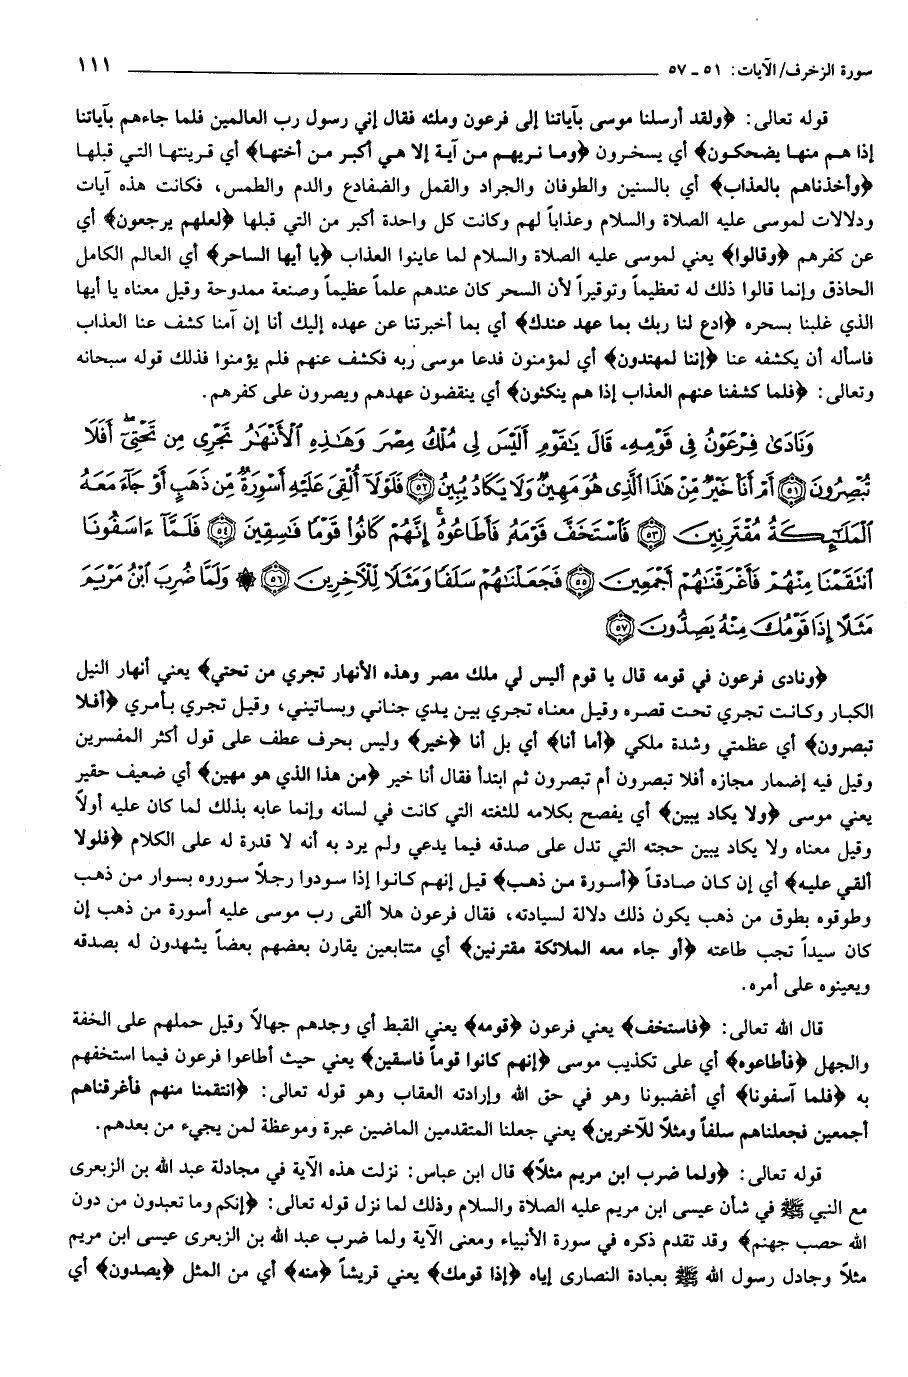 سورة الزخرف/الآيات: ٥١ ـ ٥٧ ١١١
قوله تعالى: ﴿ولقد أرسلنا موسى بآياتنا إلى فرعون وملئه فقال إني رسول رب العالمين فلما جاءهم بآياتنا
إذا هم منها يضحكون﴾ أي يسخرون ﴿وما نريهم من آية إلا هي أكبر من أختها﴾ أي قرينتها التي قبلها
﴿وأخذناهم بالعذاب﴾ أي بالسنين والطوفان والجراد والقمل والضفادع والدم والطمس، فكانت هذه آيات
ودلالات لموسى عليه الصلاة والسلام وعذاباً لهم وكانت كل واحدة أكبر من التي قبلها ﴿لعلهم يرجعون﴾ أي
عن كفرهم ﴿وقالوا﴾ يعني لموسى عليه الصلاة والسلام لما عاينوا العذاب ﴿يا أيها الساحر﴾ أي العالم الكامل
الحاذق وإنما قالوا ذلك له تعظيماً وتوقيراً لأن السحر كان عندهم علماً عظيماً وصنعة ممدوحة وقيل معناه يا أيها
الذي غلبنا بسحره ﴿ادع لنا ربك بما عهد عندك﴾ أي بما أخبرتنا عن عهده إليك أنا إن آمنا كشف عنا العذاب
فاسأله أن يكشفه عنا ﴿إننا لمهتدون﴾ أي لمؤمنون فدعا موسى ربه فكشف عنهم فلم يؤمنوا فذلك قوله سبحانه
وتعالى: ﴿فلما كشفنا عنهم العذاب إذا هم ينكثون﴾ أي ينقضون عهدهم ويصرون على كفرهم.
وَنَادَىٰ فِرْعَوْنُ فِي قَوْمِهِۦ قَالَ يَٰقَوْمِ أَلَيْسَ لِي مُلْكُ مِصْرَ وَهَٰذِهِ ٱلْأَنْهَٰرُ تَجْرِي مِن تَحْتِيٓ ۖ أَفَلَا
تُبْصِرُونَ ﴿٥١﴾ أَمْ أَنَا۠ خَيْرٌ مِّنْ هَٰذَا ٱلَّذِي هُوَ مَهِينٌ وَلَا يَكَادُ يُبِينُ ﴿٥٢﴾ فَلَوْلَآ أُلْقِيَ عَلَيْهِ أَسْوِرَةٌ مِّن ذَهَبٍ أَوْ جَآءَ مَعَهُ
ٱلْمَلَٰٓئِكَةُ مُقْتَرِنِينَ ﴿٥٣﴾ فَٱسْتَخَفَّ قَوْمَهُۥ فَأَطَاعُوهُ ۚ إِنَّهُمْ كَانُوا۟ قَوْمًا فَٰسِقِينَ ﴿٥٤﴾ فَلَمَّآ ءَاسَفُونَا
ٱنتَقَمْنَا مِنْهُمْ فَأَغْرَقْنَٰهُمْ أَجْمَعِينَ ﴿٥٥﴾ فَجَعَلْنَٰهُمْ سَلَفًا وَمَثَلًا لِّلْآخِرِينَ ﴿٥٦﴾ ۞ وَلَمَّا ضُرِبَ ٱبْنُ مَرْيَمَ
مَثَلًا إِذَا قَوْمُكَ مِنْهُ يَصِدُّونَ ﴿٥٧﴾
﴿ونادى فرعون في قومه قال يا قوم أليس لي ملك مصر وهذه الأنهار تجري من تحتي﴾ يعني أنهار النيل
الكبار وكانت تجري تحت قصره وقيل معناه تجري بين يدي جناني وبساتيني، وقيل تجري بأمري ﴿أفلا
تبصرون﴾ أي عظمتي وشدة ملكي ﴿أما أنا﴾ أي بل أنا ﴿خير﴾ وليس بحرف عطف على قول أكثر المفسرين
وقيل فيه إضمار مجازه أفلا تبصرون أم تبصرون ثم ابتدأ فقال أنا خير ﴿من هذا الذي هو مهين﴾ أي ضعيف حقير
يعني موسى ﴿ولا يكاد يبين﴾ أي يفصح بكلامه للثغته التي كانت في لسانه وإنما عابه بذلك لما كان عليه أولاً
وقيل معناه ولا يكاد يبين حجته التي تدل على صدقه فيما يدعي ولم يرد به أنه لا قدرة له على الكلام ﴿فلولا
ألقي عليه﴾ أي إن كان صادقاً ﴿أسورة من ذهب﴾ قيل إنهم كانوا إذا سودوا رجلاً سوروه بسوار من ذهب
وطوقوه بطوق من ذهب يكون ذلك دلالة لسيادته، فقال فرعون هلا ألقى رب موسى عليه أسورة من ذهب إن
كان سيداً تجب طاعته ﴿أو جاء معه الملائكة مقترنين﴾ أي متتابعين يقارن بعضهم بعضاً يشهدون له بصدقه
ويعينوه على أمره.
قال الله تعالى: ﴿فاستخف﴾ يعني فرعون ﴿قومه﴾ يعني القبط أي وجدهم جهالاً وقيل حملهم على الخفة
والجهل ﴿فأطاعوه﴾ أي على تكذيب موسى ﴿إنهم كانوا قوماً فاسقين﴾ يعني حيث أطاعوا فرعون فيما استخفهم
به ﴿فلما آسفونا﴾ أي أغضبونا وهو في حق الله وإرادته العقاب وهو قوله تعالى: ﴿انتقمنا منهم فأغرقناهم
أجمعين فجعلناهم سلفاً ومثلاً للآخرين﴾ يعني جعلنا المتقدمين الماضين عبرة وموعظة لمن يجيء من بعدهم.
قوله تعالى: ﴿ولما ضرب ابن مريم مثلاً﴾ قال ابن عباس: نزلت هذه الآية في مجادلة عبد الله بن الزبعرى
مع النبي ﷺ في شأن عيسى ابن مريم عليه الصلاة والسلام وذلك لما نزل قوله تعالى: ﴿إنكم وما تعبدون من دون
الله حصب جهنم﴾ وقد تقدم ذكره في سورة الأنبياء ومعنى الآية ولما ضرب عبد الله بن الزبعرى عيسى ابن مريم
مثلاً وجادل رسول الله ﷺ بعبادة النصارى إياه ﴿إذا قومك﴾ يعني قريشاً ﴿منه﴾ أي من المثل ﴿يصدون﴾ أي